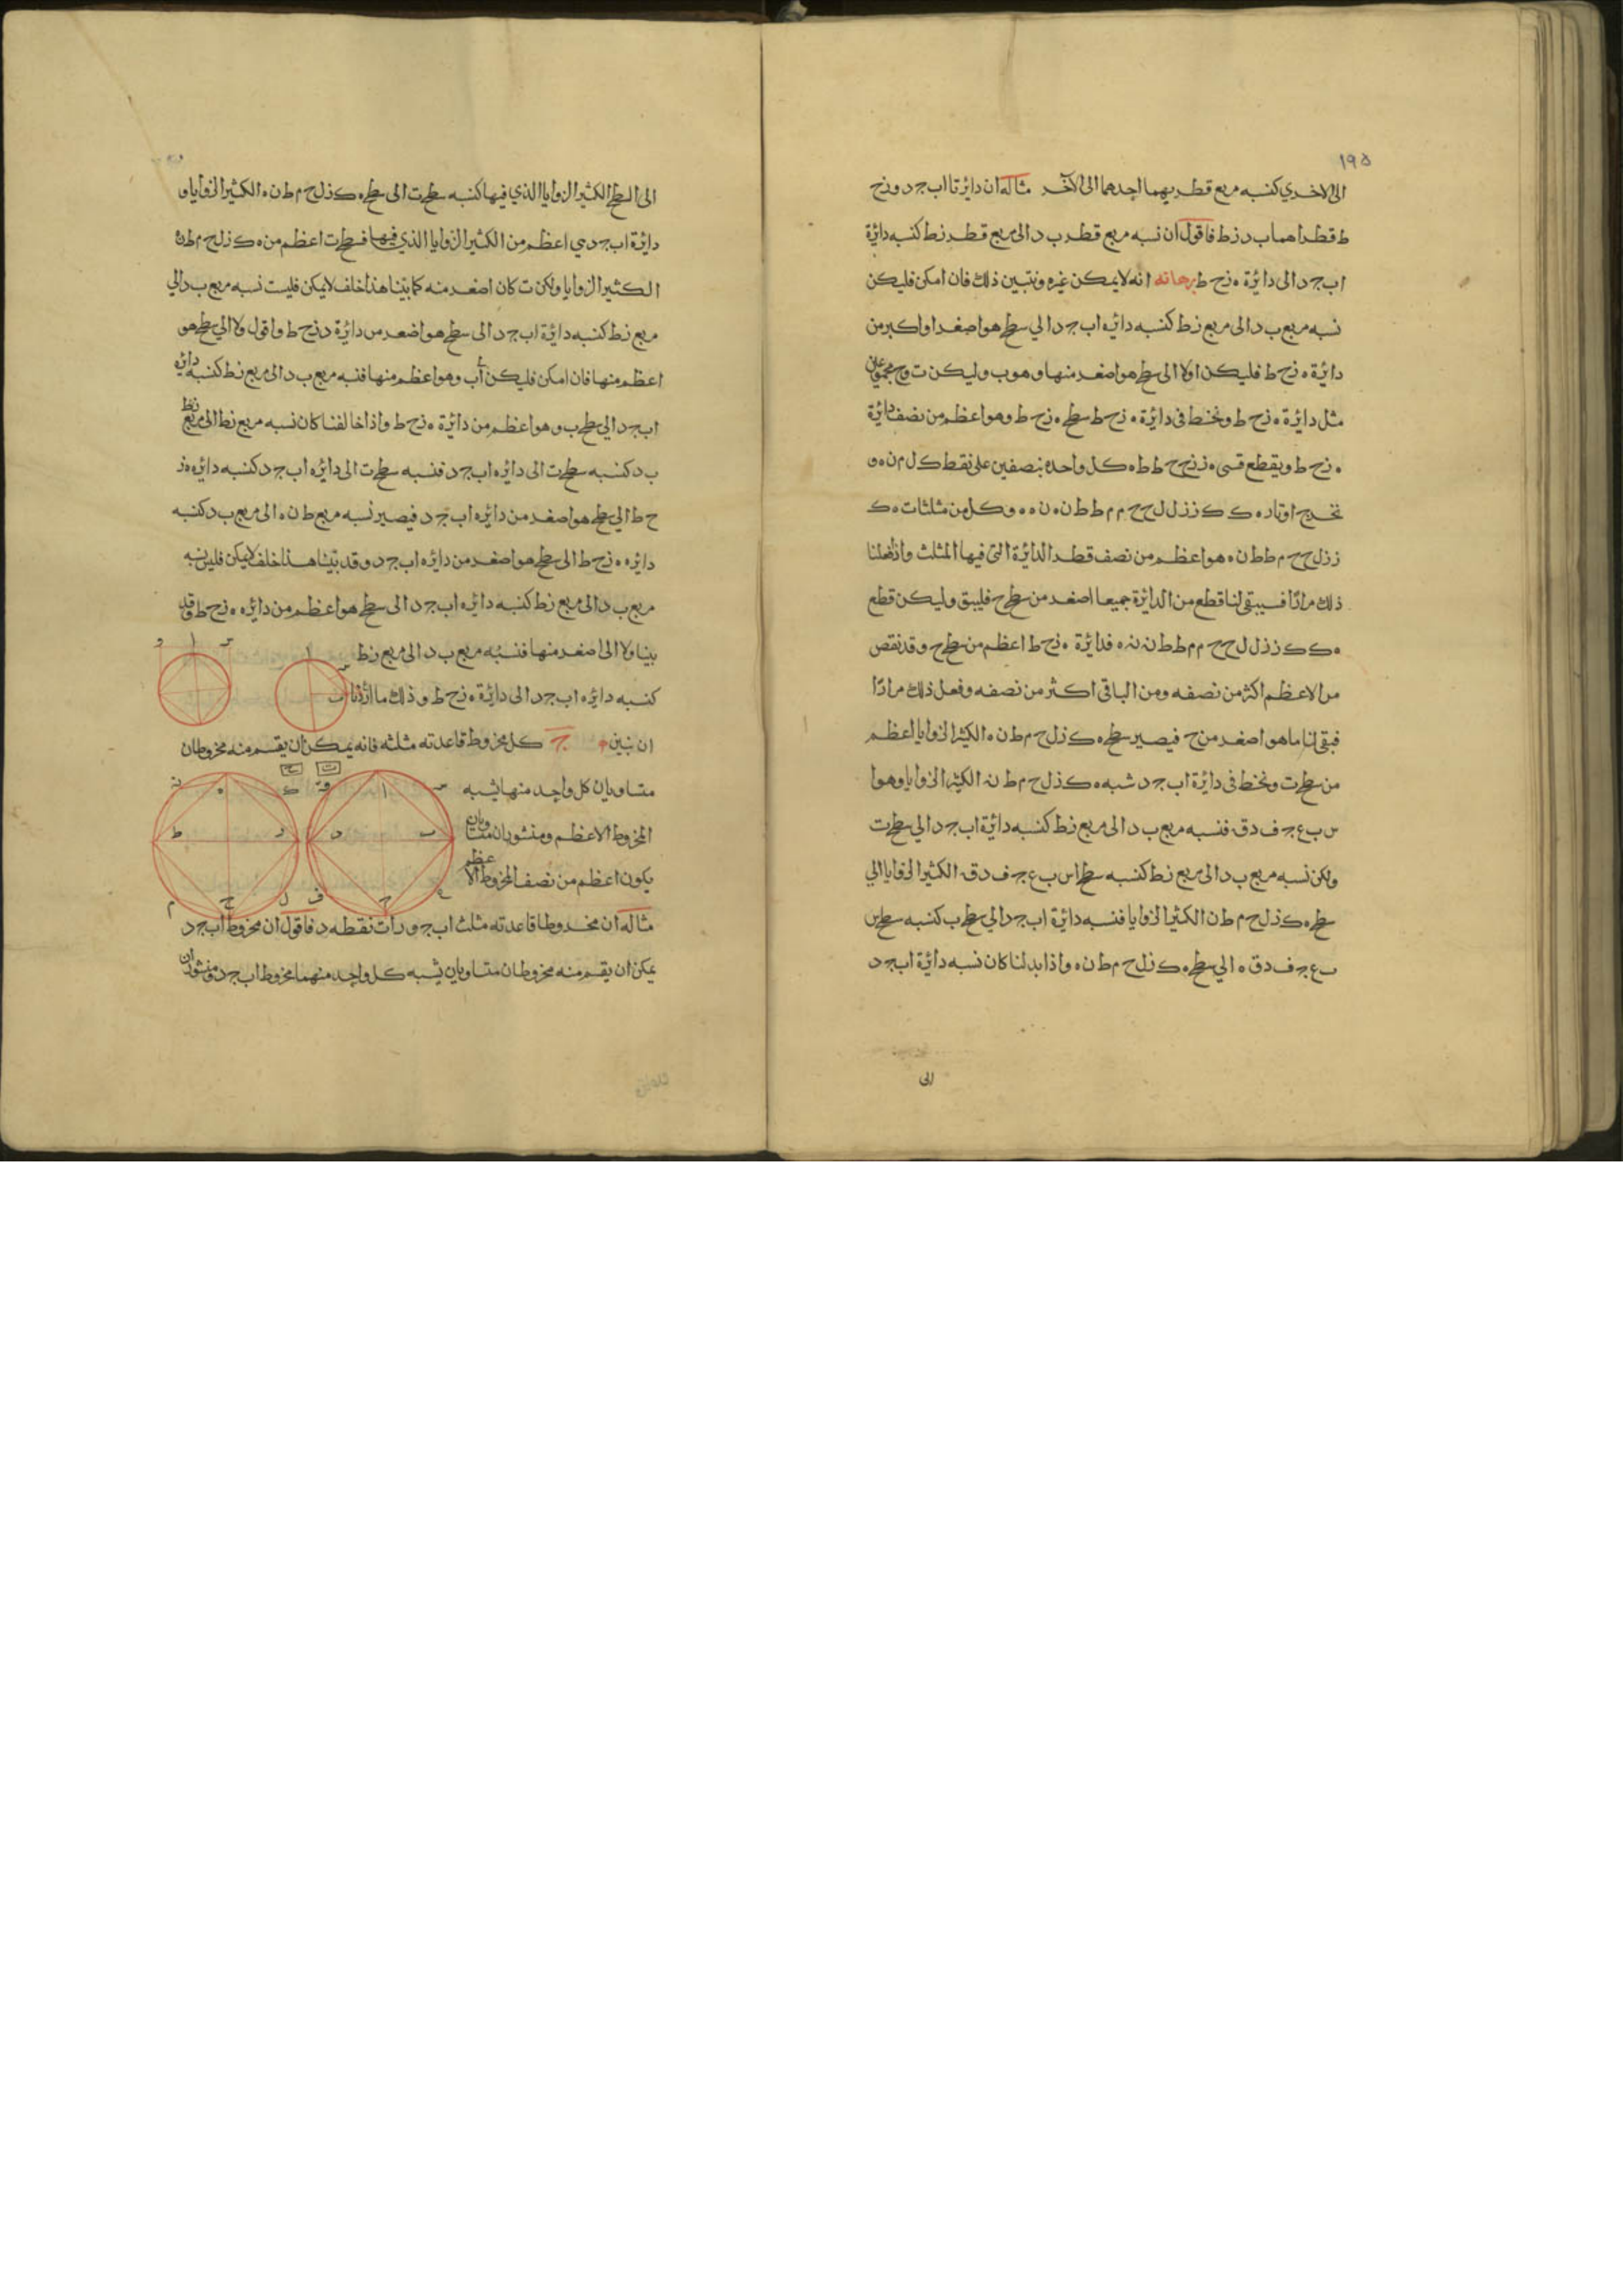 ١٩٥
الى الاخرى كنسبه مربع قطريهما احدهما الى الآخر مثاله ان دائرتا اب ج د ه زح
ط قطراهما ب د زط فاقول ان نسبه مربع قطر ب د الى مربع قطر زط كنسبه دائرة
اب ج د الى دائرة ه زح ط برهانه انه لا يمكن غيره ونتبين ذلك فان امكن فليكن
نسبه مربع ب د الى مربع زط كنسبه دائره اب ج د الي سطح هو اصغر او اكبر من
دائرة ه زح ط فليكن اولا الى سطح هو اصغر منها وهو ب وليكن ت وح مجموعان
مثل دائرة ه زح ط ونخط في دائرة ه زح ط سطح ه زح ط وهو اعظم من نصف دائرة
ه زح ط ويقطع قسى ه ز زح ح ط ط ه كل واحده بنصفين على نقط ك ل م ن ه و
نخرج اوتار ه ك ك ز ز ل ل ح ح م م ط ط ن ن ه وكل من مثلثات ه ك
ز ز ل ح ح م ط ط ن ه هو اعظم من نصف قطر الدائرة التي فيها المثلث واذا فعلنا
ذلك مرارًا فسيبقى لنا قطع من الدائرة جميعا اصغر من سطح ح فليبق وليكن قطع
ه ك ك ز ز ل ل ح ح م م ط ط ن ن ه فدائرة ه زح ط اعظم من سطح ح وقد نقص
من الاعظم اكثر من نصفه ومن الباقي اكثر من نصفه وفعل ذلك مرارًا
فبقى لنا ما هو اصغر من ح فيصير سطح ه ك ز ل ح م ط ن ه الكثير الزوايا اعظم
من سطح ت ونخط في دائرة اب ج د شبه ه ك ز ل ح م ط ن الكثير الزوايا وهو ا
س ب ع ج ف د ق فنسبه مربع ب د الى مربع زط كنسبه دائرة اب ج د الي سطح ت
ولكن نسبه مربع ب د الى مربع زط كنسبه سطح اس ب ع ج ف د ق الكثير الزوايا الي
سطح ه ك ز ل ح م ط ن الكثير الزوايا فنسبه دائرة اب ج د الي سطح ب كنسبه سطح اس
ب ع ج ف د ق ه الي سطح ه ك ز ل ح م ط ن ه واذا بدلنا كان نسبه دائرة اب ج د
الى
الى السطح الكثير الزوايا الذي فيها كنسبه سطح ت الى سطح ه ك ز ل ح م ط ن ه الكثير الزوايا و
دائرة اب ج د هي اعظم من الكثير الزوايا الذي فيها فسطح ت اعظم من ه ك ز ل ح م ط ن
الكثير الزوايا ولكن ت كان اصغر منه كما بينا هذا خلف لا يمكن فليست نسبه مربع ب د الي
مربع زط كنسبه دائرة اب ج د الى سطح هو اصغر من دائرة ه زح ط واقول ولا الي سطح هو
اعظم منها فان امكن فليكن اب وهو اعظم منها فنسبه مربع ب د الى مربع زط كنسبه دائره
اب ج د الي سطح ب وهو اعظم من دائرة ه زح ط واذا خالفنا كان نسبه مربع زط الى مربع
ب د كنسبه سطح ت الى دائره اب ج د فنسبه سطح ت الى دائره اب ج د كنسبه دائره ه ز
ح ط الي سطح هو اصغر من دائره اب ج د فيصير نسبه مربع ط ن ه الى مربع ب د كنسبه
دائره ه زح ط الى سطح هو اصغر من دائره اب ج د وقد بينا هذا خلف لا يمكن فليس نسبه
مربع ب د الى مربع زط كنسبه دائره اب ج د الى سطح هو اعظم من دائره ه زح ط وقد
بينا ولا الى اصغر منها فنسبه مربع ب د الى مربع زط
كنسبه دائره اب ج د الى دائرة ه زح ط وذلك ما اردنا
ان نبين ج كل مخروط قاعدته مثلثه فانه يمكن ان يقسم منه مخروطان
متساويان كل واحد منهما يشبه
المخروط الاعظم ومنشوران متساويان
يكون اعظم من نصف المخروط الاعظم
مثاله ان مخروطا قاعدته مثلث اب ج وراسه نقطه د فاقول ان مخروط اب ج د
يمكن ان يقسم منه مخروطان متساويان يشبه كل واحد منهما مخروط اب ج د ومنشوران